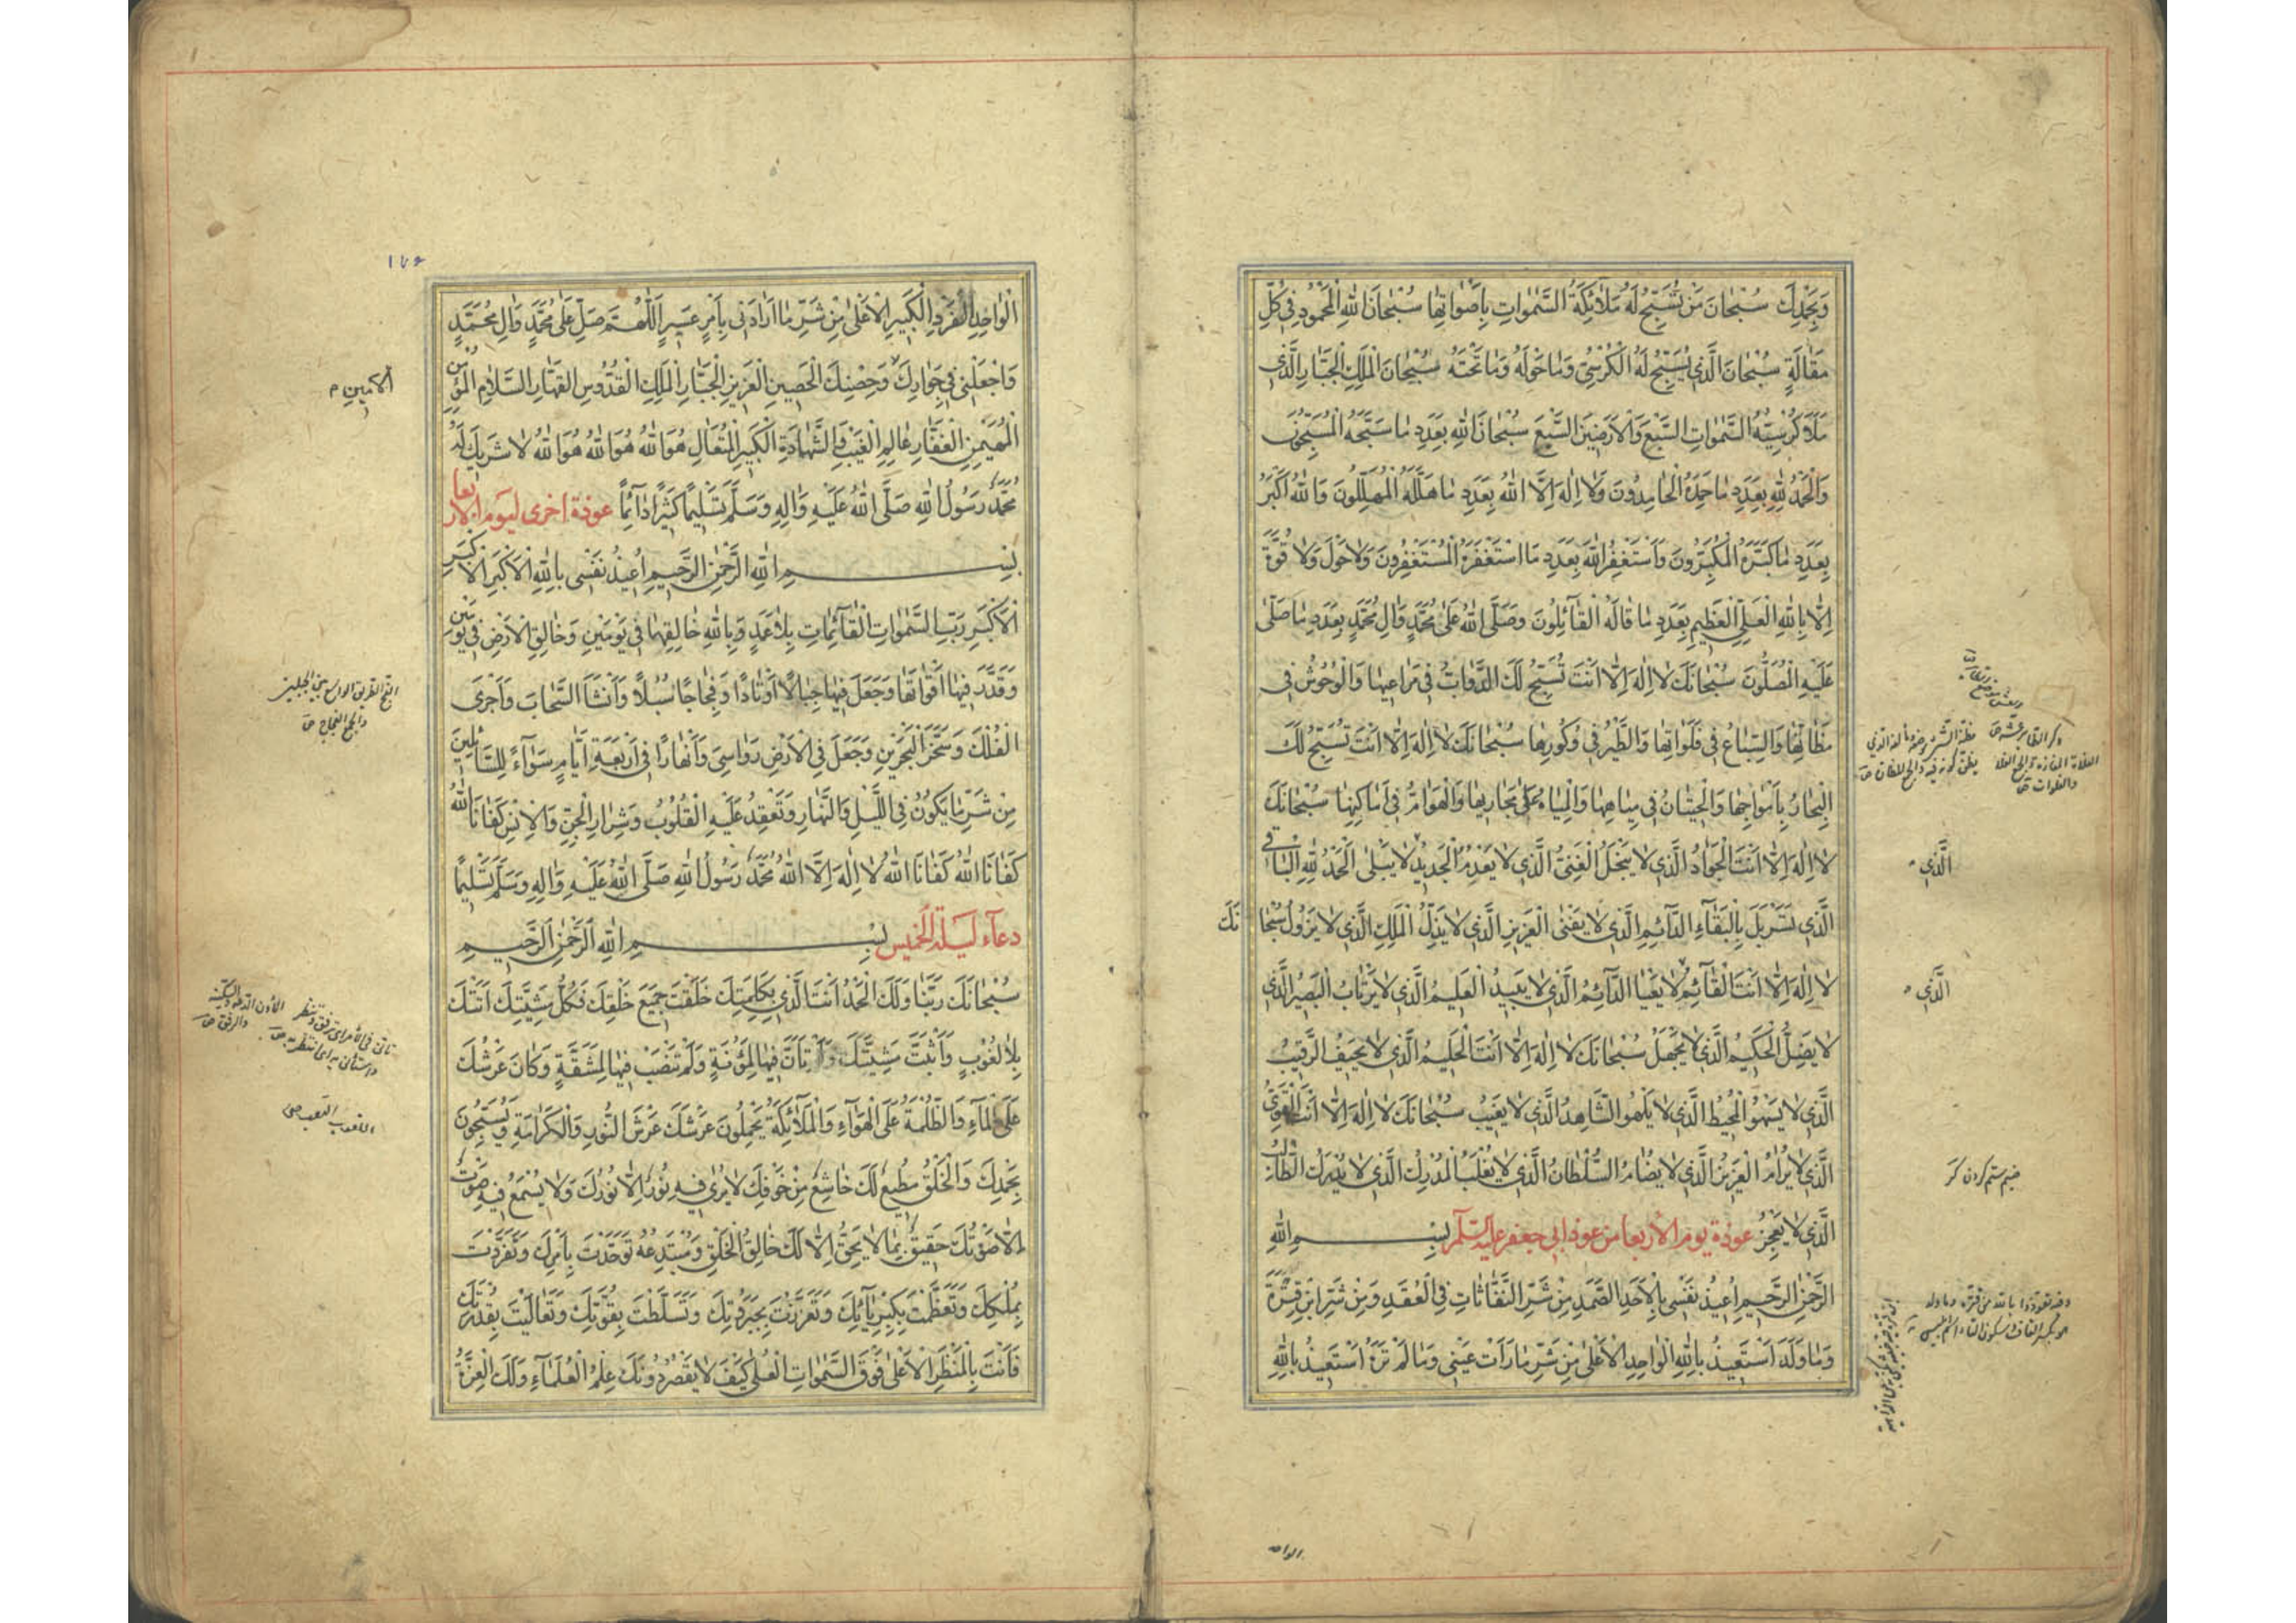 وَبِحَمْدِكَ سُبْحَانَ مَنْ تُسَبِّحُ لَهُ مَلَائِكَةُ السَّمٰوَاتِ بِأَصْوَاتِهَا سُبْحَانَ اللهِ الْمَحْمُودِ فِي كُلِّ
مَقَالَةٍ سُبْحَانَ الَّذِي يُسَبِّحُ لَهُ الْكُرْسِيُّ وَمَا حَوْلَهُ وَمَا تَحْتَهُ سُبْحَانَ الْمَلِكِ الْجَبَّارِ الَّذِي
مَلَأَ كُرْسِيُّهُ السَّمٰوَاتِ السَّبْعَ وَالْأَرَضِينَ السَّبْعَ سُبْحَانَ اللهِ بِعَدَدِ مَا سَبَّحَهُ الْمُسَبِّحُونَ
وَالْحَمْدُ لِلّٰهِ بِعَدَدِ مَا حَمِدَهُ الْحَامِدُونَ وَلَا اِلٰهَ اِلَّا اللهُ بِعَدَدِ مَا هَلَّلَهُ الْمُهَلِّلُونَ وَاللهُ أَكْبَرُ
بِعَدَدِ مَا كَبَّرَهُ الْمُكَبِّرُونَ وَاَسْتَغْفِرُ اللهَ بِعَدَدِ مَا اسْتَغْفَرَهُ الْمُسْتَغْفِرُونَ وَلَا حَوْلَ وَلَا قُوَّةَ
اِلَّا بِاللهِ الْعَلِيِّ الْعَظِيمِ بِعَدَدِ مَا قَالَهُ الْقَائِلُونَ وَصَلَّى اللهُ عَلٰى مُحَمَّدٍ وَاٰلِ مُحَمَّدٍ بِعَدَدِ مَا صَلّٰى
عَلَيْهِ الْمُصَلُّونَ سُبْحَانَكَ لَا اِلٰهَ اِلَّا اَنْتَ تُسَبِّحُ لَكَ الدَّوَابُّ فِي مَرَاعِيهَا وَالْوُحُوشُ فِي
مَظَانِّهَا وَالسِّبَاعُ فِي فَلَوَاتِهَا وَالطَّيْرُ فِي وُكُورِهَا سُبْحَانَكَ لَا اِلٰهَ اِلَّا اَنْتَ تُسَبِّحُ لَكَ
الْبِحَارُ بِأَمْوَاجِهَا وَالْحِيتَانُ فِي مِيَاهِهَا وَالْمِيَاهُ عَلٰى مَجَارِيهَا وَالْهَوَامُّ فِي أَمَاكِنِهَا سُبْحَانَكَ
لَا اِلٰهَ اِلَّا اَنْتَ الْجَوَادُ الَّذِي لَا يَبْخَلُ الْغَنِيُّ الَّذِي لَا يَعْدَمُ الْجَدِيدُ لَا يَبْلٰى الْحَمْدُ لِلّٰهِ الْبَاقِي
الَّذِي تَسَرْبَلَ بِالْبَقَاءِ الدَّائِمِ الَّذِي لَا يَفْنٰى الْعَزِيزِ الَّذِي لَا يَذِلُّ الْمَلِكِ الَّذِي لَا يَزُولُ سُبْحَانَكَ
لَا اِلٰهَ اِلَّا اَنْتَ الْقَائِمُ لَا يَعْيَا الدَّائِمُ الَّذِي لَا يَبِيدُ الْعَلِيمُ الَّذِي لَا يَرْتَابُ الْبَصِيرُ الَّذِي
لَا يَضِلُّ الْحَكِيمُ الَّذِي لَا يَجْهَلُ سُبْحَانَكَ لَا اِلٰهَ اِلَّا اَنْتَ الْحَلِيمُ الَّذِي لَا يَحِيفُ الرَّقِيبُ
الَّذِي لَا يَسْهُو الْمُحِيطُ الَّذِي لَا يَلْهُو الشَّاهِدُ الَّذِي لَا يَغِيبُ سُبْحَانَكَ لَا اِلٰهَ اِلَّا اَنْتَ الْقَوِيُّ
الَّذِي لَا يُرَامُ الْعَزِيزُ الَّذِي لَا يُضَامُ السُّلْطَانُ الَّذِي لَا يُغْلَبُ الْمُدْرِكُ الَّذِي لَا يُدْرَكُ الطَّالِبُ
الَّذِي لَا يَعْجِزُ عوذة يوم الأربعا من عوذ ابي جعفر عليه السلم بِسْمِ اللهِ
الرَّحْمٰنِ الرَّحِيمِ اُعِيذُ نَفْسِي بِالْأَحَدِ الصَّمَدِ مِنْ شَرِّ النَّفَّاثَاتِ فِي الْعُقَدِ وَمِنْ شَرِّ ابْنِ قِتْرَةَ
وَمَا وَلَدَ اَسْتَعِيذُ بِاللهِ الْوَاحِدِ الْأَعْلٰى مِنْ شَرِّ مَا رَأَتْ عَيْنِي وَمَا لَمْ تَرَهُ اَسْتَعِيذُ بِاللهِ
الَّذِي
الَّذِي
ضيم ستم كردن كنز
الوا
١٧٦
الْوَاحِدِ الْفَرْدِ الْكَبِيرِ الْأَعْلٰى مِنْ شَرِّ مَا اَرَادَنِي بِأَمْرٍ عَسِيرٍ اَللّٰهُمَّ صَلِّ عَلٰى مُحَمَّدٍ وَاٰلِ مُحَمَّدٍ
وَاجْعَلْنِي فِي جِوَارِكَ وَحِصْنِكَ الْحَصِينِ الْعَزِيزِ الْجَبَّارِ الْمَلِكِ الْقُدُّوسِ الْقَهَّارِ السَّلَامِ الْمُؤْمِنِ
الْمُهَيْمِنِ الْغَفَّارِ عَالِمِ الْغَيْبِ وَالشَّهَادَةِ الْكَبِيرِ الْمُتَعَالِ هُوَ اللهُ هُوَ اللهُ هُوَ اللهُ لَا شَرِيكَ لَهُ
مُحَمَّدٌ رَسُولُ اللهِ صَلَّى اللهُ عَلَيْهِ وَاٰلِهِ وَسَلَّمَ تَسْلِيمًا كَثِيرًا دَائِمًا عوذة اخرى ليوم الاربعا
بِسْمِ اللهِ الرَّحْمٰنِ الرَّحِيمِ اُعِيذُ نَفْسِي بِاللهِ الْأَكْبَرِ الْأَكْبَرِ
الْأَكْبَرِ رَبِّ السَّمٰوَاتِ الْقَائِمَاتِ بِلَا عَمَدٍ وَبِاللهِ خَالِقِهَا فِي يَوْمَيْنِ وَخَالِقِ الْأَرْضِ فِي يَوْمَيْنِ
وَقَدَّرَ فِيهَا اَقْوَاتَهَا وَجَعَلَ فِيهَا جِبَالًا اَوْتَادًا وَفِجَاجًا سُبُلًا وَاَنْشَأَ السَّحَابَ وَاَجْرَى
الْفُلْكَ وَسَخَّرَ الْبَحْرَيْنِ وَجَعَلَ فِي الْأَرْضِ رَوَاسِيَ وَاَنْهَارًا فِي اَرْبَعَةِ اَيَّامٍ سَوَاءً لِلسَّائِلِينَ
مِنْ شَرِّ مَا يَكُونُ فِي اللَّيْلِ وَالنَّهَارِ وَتَعْقِدُ عَلَيْهِ الْقُلُوبُ وَشِرَارِ الْجِنِّ وَالْاِنْسِ كَفَانَا اللهُ
كَفَانَا اللهُ كَفَانَا اللهُ لَا اِلٰهَ اِلَّا اللهُ مُحَمَّدٌ رَسُولُ اللهِ صَلَّى اللهُ عَلَيْهِ وَاٰلِهِ وَسَلَّمَ تَسْلِيمًا
دعاء ليلة الخميس بِسْمِ اللهِ الرَّحْمٰنِ الرَّحِيمِ
سُبْحَانَكَ رَبَّنَا وَلَكَ الْحَمْدُ اَنْتَ الَّذِي بِكَلِمَتِكَ خَلَقْتَ جَمِيعَ خَلْقِكَ فَكُلُّ مَشِيَّتِكَ اَتَتْكَ
بِلَا لُغُوبٍ وَاَثْبَتَّ مَشِيَّتَكَ وَلَمْ تَأَنَّ فِيهَا لِمَؤُنَةٍ وَلَمْ تَنْصَبْ فِيهَا لِمَشَقَّةٍ وَكَانَ عَرْشُكَ
عَلَى الْمَاءِ وَالظُّلْمَةُ عَلَى الْهَوَاءِ وَالْمَلَائِكَةُ يَحْمِلُونَ عَرْشَكَ عَرْشَ النُّورِ وَالْكَرَامَةِ وَيُسَبِّحُونَ
بِحَمْدِكَ وَالْخَلْقُ مُطِيعٌ لَكَ خَاشِعٌ مِنْ خَوْفِكَ لَا يُرٰى فِيهِ نُورٌ اِلَّا نُورُكَ وَلَا يُسْمَعُ فِيهِ صَوْتٌ
اِلَّا صَوْتُكَ حَقِيقٌ بِمَا لَا يَحِقُّ اِلَّا لَكَ خَالِقُ الْخَلْقِ وَمُبْتَدِعُهُ تَوَحَّدْتَ بِأَمْرِكَ وَتَفَرَّدْتَ
بِمُلْكِكَ وَتَعَظَّمْتَ بِكِبْرِيَائِكَ وَتَعَزَّزْتَ بِجَبَرُوتِكَ وَتَسَلَّطْتَ بِقُوَّتِكَ وَتَعَالَيْتَ بِقُدْرَتِكَ
فَاَنْتَ بِالْمَنْظَرِ الْأَعْلٰى فَوْقَ السَّمٰوَاتِ الْعُلٰى كَيْفَ لَا يَقْصُرُ دُونَكَ عِلْمُ الْعُلَمَاءِ وَلَكَ الْعِزَّةُ
الامين
الفج الطريق الواسع بين الجبلين
والجمع الفجاج
اللغوب التعب